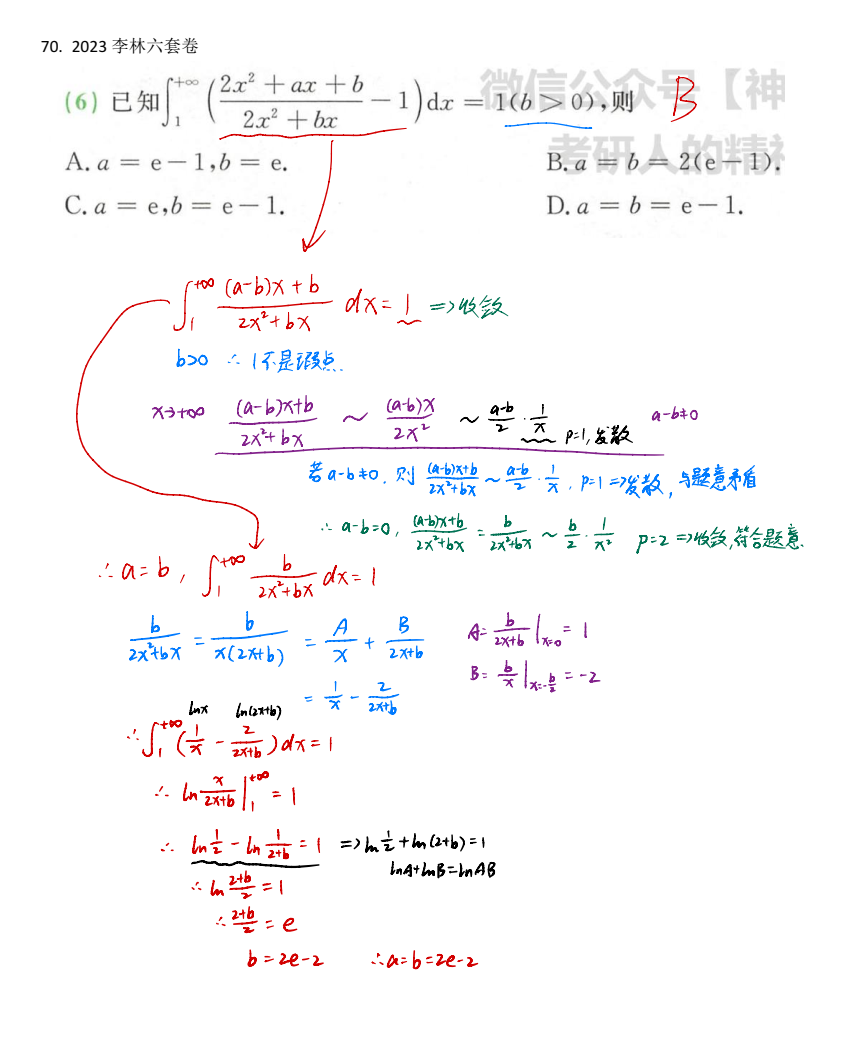 70. 2023 李林六套卷
微信公众号【神
考研人的精神
(6) 已知∫₁^{+∞} ((2x² + ax + b)/(2x² + bx) − 1)dx = 1(b > 0),则 B
A. a = e − 1,b = e.
B. a = b = 2(e − 1).
C. a = e,b = e − 1.
D. a = b = e − 1.
∫₁^{+∞} ((a-b)x + b)/(2x² + bx) dx = 1 => 收敛
b>0 ∴ 1不是瑕点.
x→+∞ ((a-b)x+b)/(2x²+bx) ~ (a-b)x/2x² ~ (a-b)/2 · 1/x p=1, 发散 a-b≠0
若a-b≠0, 则 ((a-b)x+b)/(2x²+bx) ~ (a-b)/2 · 1/x, p=1 => 发散, 与题意矛盾
∴ a-b=0, ((a-b)x+b)/(2x²+bx) = b/(2x²+bx) ~ b/2 · 1/x² p=2 => 收敛, 符合题意.
∴ a=b, ∫₁^{+∞} b/(2x²+bx) dx = 1
b/(2x²+bx) = b/(x(2x+b)) = A/x + B/(2x+b)
A = b/(2x+b) |_{x=0} = 1
B = b/x |_{x=-b/2} = -2
= 1/x - 2/(2x+b)
lnx ln(2x+b)
∴ ∫₁^{+∞} (1/x - 2/(2x+b)) dx = 1
∴ ln x/(2x+b) |₁^{+∞} = 1
∴ ln 1/2 - ln 1/(2+b) = 1 => ln 1/2 + ln(2+b) = 1
lnA+lnB=lnAB
∴ ln (2+b)/2 = 1
∴ (2+b)/2 = e
b = 2e-2 ∴ a=b=2e-2